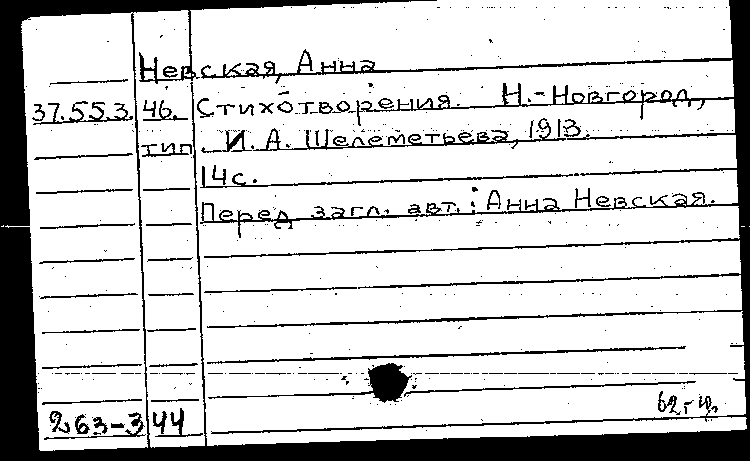 Невская, Анна
37.55.3.46. Стихотворения. Н.-Новгород,
тип. И. А. Шелеметьева, 1913.
14 с.
Перед загл. авт.: Анна Невская.
263-344